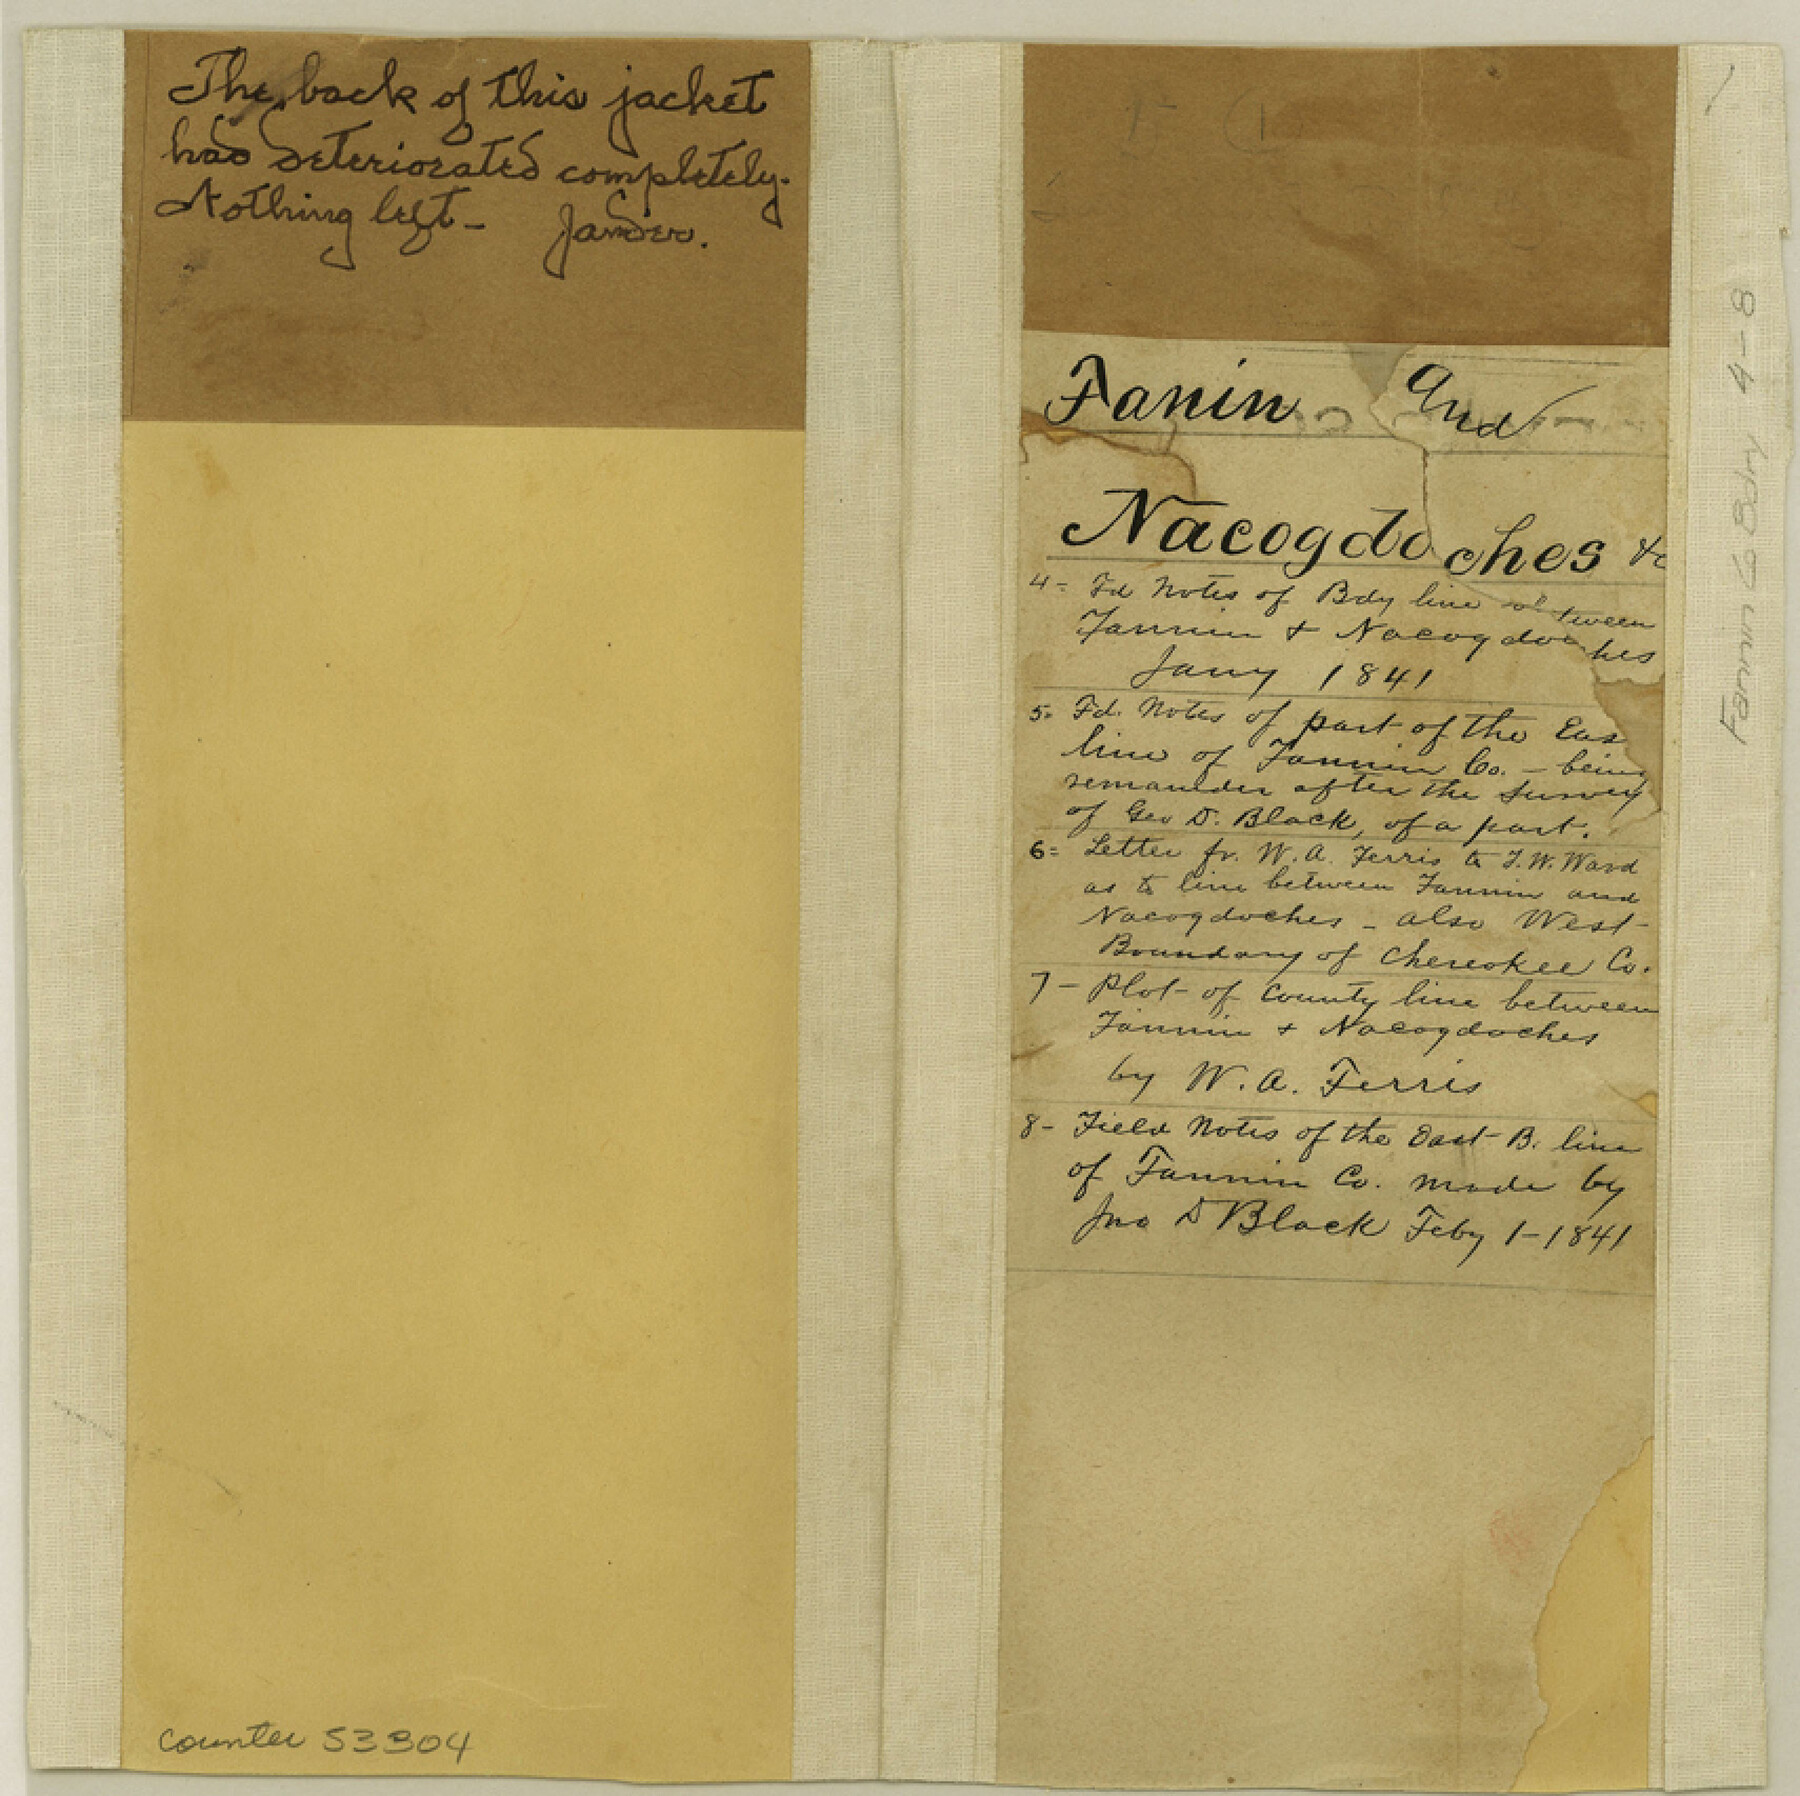 The back of this jacket
has deteriorated completely.
Nothing left - Jander.
counter 53304
Fanin and
Nacogdoches &c
4= Fd Notes of Bdy line between
Fannin & Nacogdoches
Jany 1841
5= Fd. Notes of part of the Eas
line of Fannin Co. - being
remainder after the survey
of Geo D. Black, of a part.
6= Letter fr. W. A. Ferris to T. W. Ward
as to line between Fannin and
Nacogdoches - also West
Boundary of Cherokee Co.
7- Plot of County line between
Fannin & Nacogdoches
by W. A. Ferris
8- Field Notes of the East B. line
of Fannin Co. made by
Jno D Black Feby 1-1841
Fannin Co Bdry 4-8